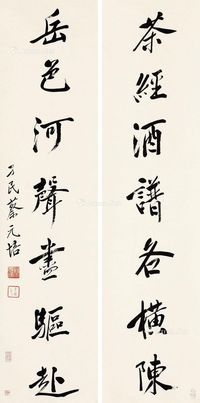 茶經酒譜各橫陳
岳色河聲盡驅赴
孑民蔡元培